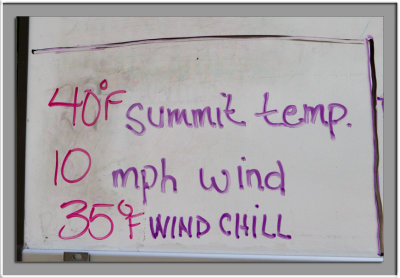 40°F summit temp.
10 mph wind
35°F WIND CHILL